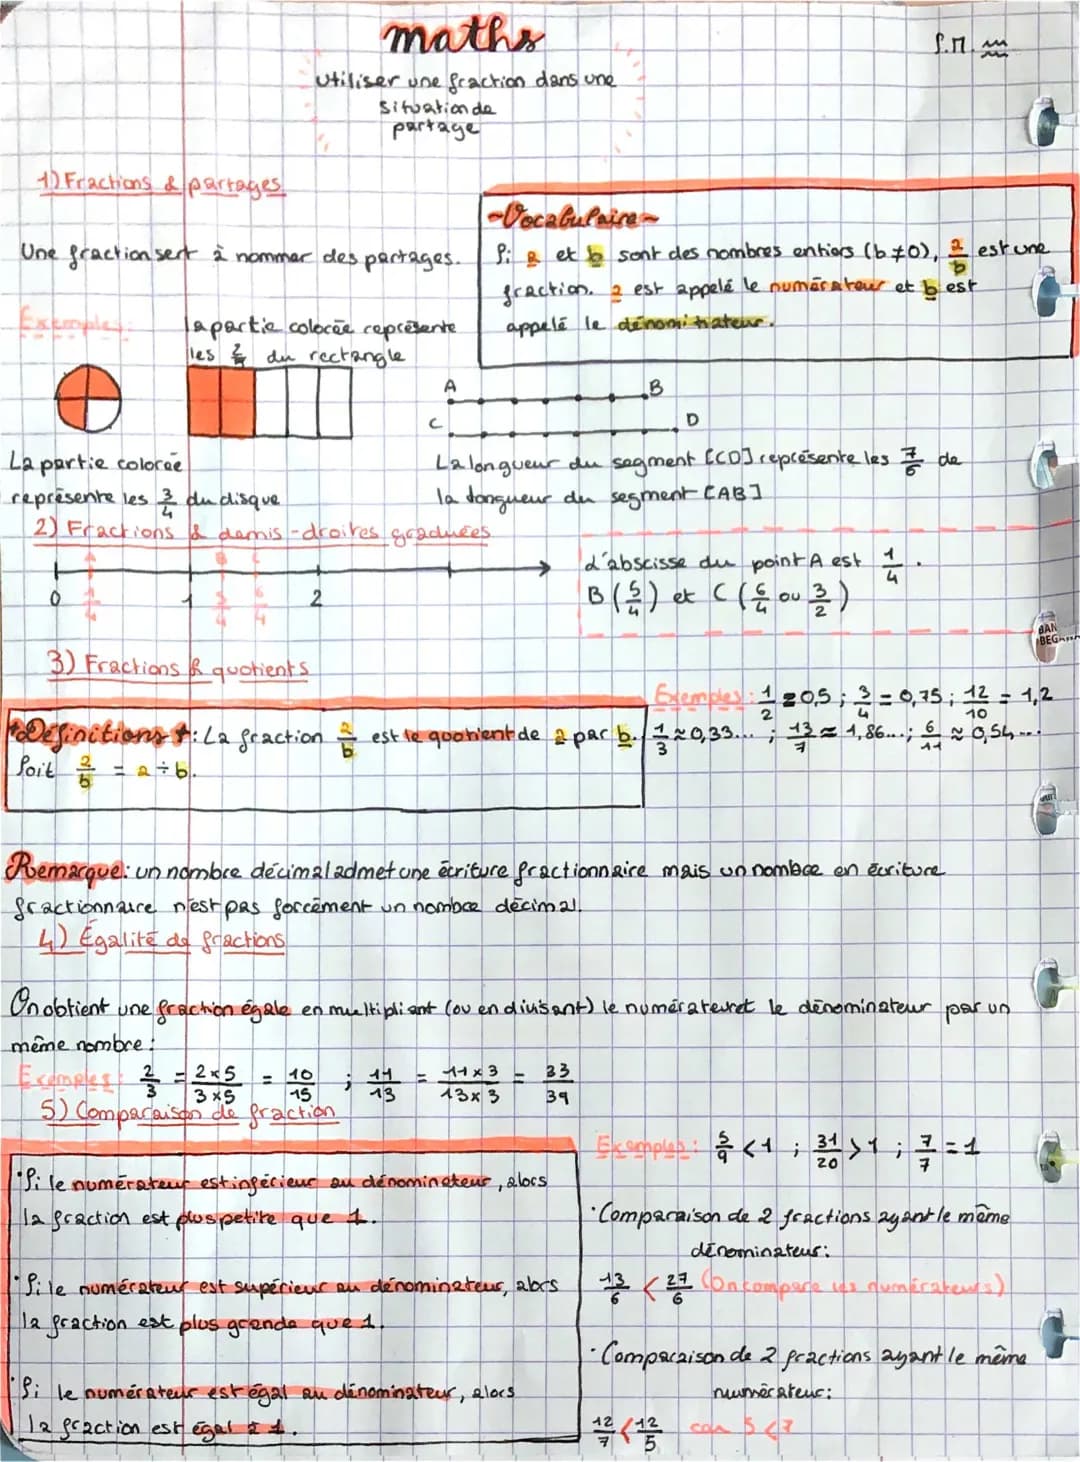 maths
S.M.
Utiliser une fraction dans une
situation de
partage
1) Fractions & partages
Une fraction sert à nommer des partages.
~Vocabulaire~
Si a et b sont des nombres entiers (b ≠ 0), a/b est une
fraction. a est appelé le numérateur et b est
appelé le dénominateur.
Exemples:
la partie colorée représente
les 2/5 du rectangle
A B
C D
La partie colorée
représente les 3/4 du disque
La longueur du segment [CD] représente les 7/6 de
la longueur du segment [AB]
2) Fractions & demis-droites graduées
A B C
0 1/4 1 5/4 6/4 2
L'abscisse du point A est 1/4.
B (5/4) et C (6/4 ou 3/2)
3) Fractions & quotients
Exemples: 1/2 = 0,5 ; 3/4 = 0,75 ; 12/10 = 1,2
1/3 ≈ 0,33... ; 13/7 ≈ 1,86... ; 6/11 ≈ 0,54...
Définitions: La fraction a/b est le quotient de a par b.
Soit a/b = a ÷ b.
Remarque: un nombre décimal admet une écriture fractionnaire mais un nombre en écriture
fractionnaire n'est pas forcément un nombre décimal.
4) Égalité de fractions
On obtient une fraction égale en multipliant (ou en divisant) le numérateur et le dénominateur par un
même nombre:
Exemples: 2/3 = 2×5/3×5 = 10/15 ; 11/13 = 11×3/13×3 = 33/39
5) Comparaison de fraction
·Si le numérateur est inférieur au dénominateur, alors
la fraction est plus petite que 1.
·Si le numérateur est supérieur au dénominateur, alors
la fraction est plus grande que 1.
·Si le numérateur est égal au dénominateur, alors
la fraction est égal à 1.
Exemples: 5/9 < 1 ; 31/20 > 1 ; 7/7 = 1
·Comparaison de 2 fractions ayant le même
dénominateur:
13/6 < 27/6 (On compare les numérateurs)
·Comparaison de 2 fractions ayant le même
numérateur:
12/7 < 12/5 car 5 < 7